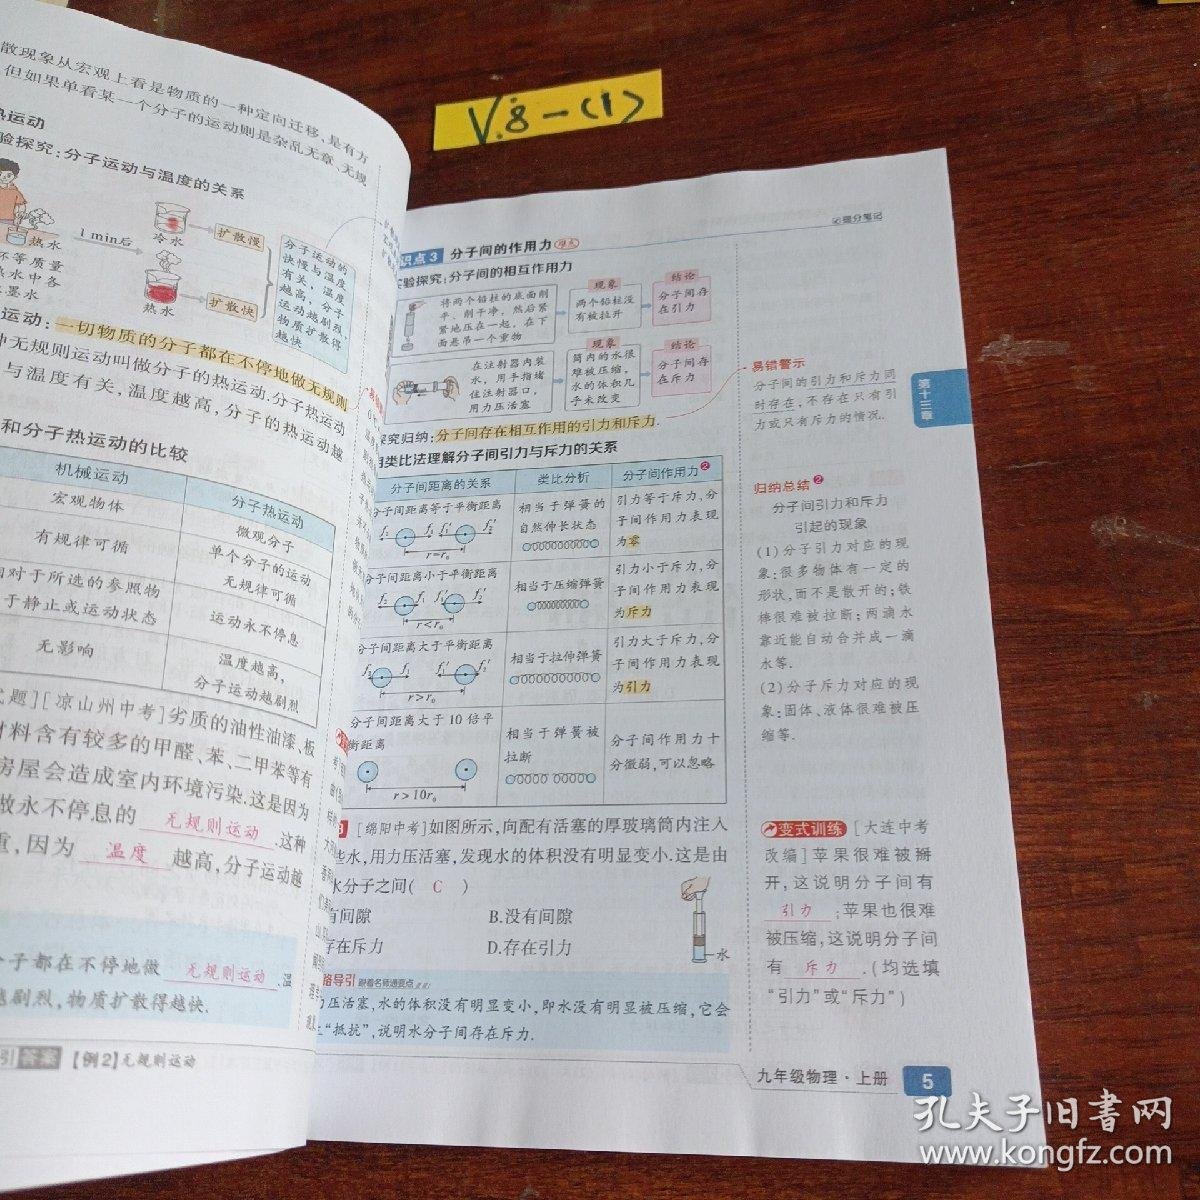 V.8-(1)
散现象从宏观上看是物质的一种定向迁移,是有方
但如果单看某一个分子的运动则是杂乱无章、无规
热运动
验探究:分子运动与温度的关系
热水
1 min后
冷水
扩散慢
热水
扩散快
杯等质量
热水中各
墨水
分子运动的
快慢与温度
有关,温度
越高,分子
运动越剧烈
物质扩散得
越快
运动:一切物质的分子都在不停地做无规则
种无规则运动叫做分子的热运动.分子热运动
与温度有关,温度越高,分子的热运动越
和分子热运动的比较
机械运动
分子热运动
宏观物体
微观分子
有规律可循
单个分子的运动
无规律可循
相对于所选的参照物
于静止或运动状态
运动永不停息
无影响
温度越高,
分子运动越剧烈
题][凉山州中考]劣质的油性油漆、板
材料含有较多的甲醛、苯、二甲苯等有
房屋会造成室内环境污染.这是因为
做永不停息的 无规则运动 .这种
重,因为 温度 越高,分子运动越
分子都在不停地做 无规则运动 .温
越剧烈,物质扩散得越快.
引 答案 【例2】无规则运动
提分笔记
识点3 分子间的作用力 难点
实验探究:分子间的相互作用力
将两个铅柱的底面削
平、削干净,然后紧
紧地压在一起,在下
面悬吊一个重物
现象
两个铅柱没
有被拉开
结论
分子间存
在引力
在注射器内装
水,用手指堵
住注射器口,
用力压活塞
现象
筒内的水很
难被压缩,
水的体积几
乎未改变
结论
分子间存
在斥力
探究归纳:分子间存在相互作用的引力和斥力.
用类比法理解分子间引力与斥力的关系
分子间距离的关系
类比分析
分子间作用力❷
分子间距离等于平衡距离
r=r₀
相当于弹簧的
自然伸长状态
引力等于斥力,分
子间作用力表现
为零
分子间距离小于平衡距离
r<r₀
相当于压缩弹簧
引力小于斥力,分
子间作用力表现
为斥力
分子间距离大于平衡距离
r>r₀
相当于拉伸弹簧
引力大于斥力,分
子间作用力表现
为引力
分子间距离大于10倍平
衡距离
r>10r₀
相当于弹簧被
拉断
分子间作用力十
分微弱,可以忽略
[绵阳中考]如图所示,向配有活塞的厚玻璃筒内注入
些水,用力压活塞,发现水的体积没有明显变小.这是由
水分子之间( C )
有间隙
B.没有间隙
存在斥力
D.存在引力
水
路导引 跟着名师通要点
力压活塞,水的体积没有明显变小,即水没有明显被压缩,它会
“抵抗”,说明水分子间存在斥力.
易错警示
分子间的引力和斥力同
时存在,不存在只有引
力或只有斥力的情况.
第十三章
归纳总结❷
分子间引力和斥力
引起的现象
(1)分子引力对应的现
象:很多物体有一定的
形状,而不是散开的;铁
棒很难被拉断;两滴水
靠近能自动合并成一滴
水等.
(2)分子斥力对应的现
象:固体、液体很难被压
缩等.
变式训练 [大连中考
改编]苹果很难被掰
开,这说明分子间有
引力 ;苹果也很难
被压缩,这说明分子间
有 斥力 .(均选填
“引力”或“斥力”)
九年级物理·上册 5
孔夫子旧书网
www.kongfz.com